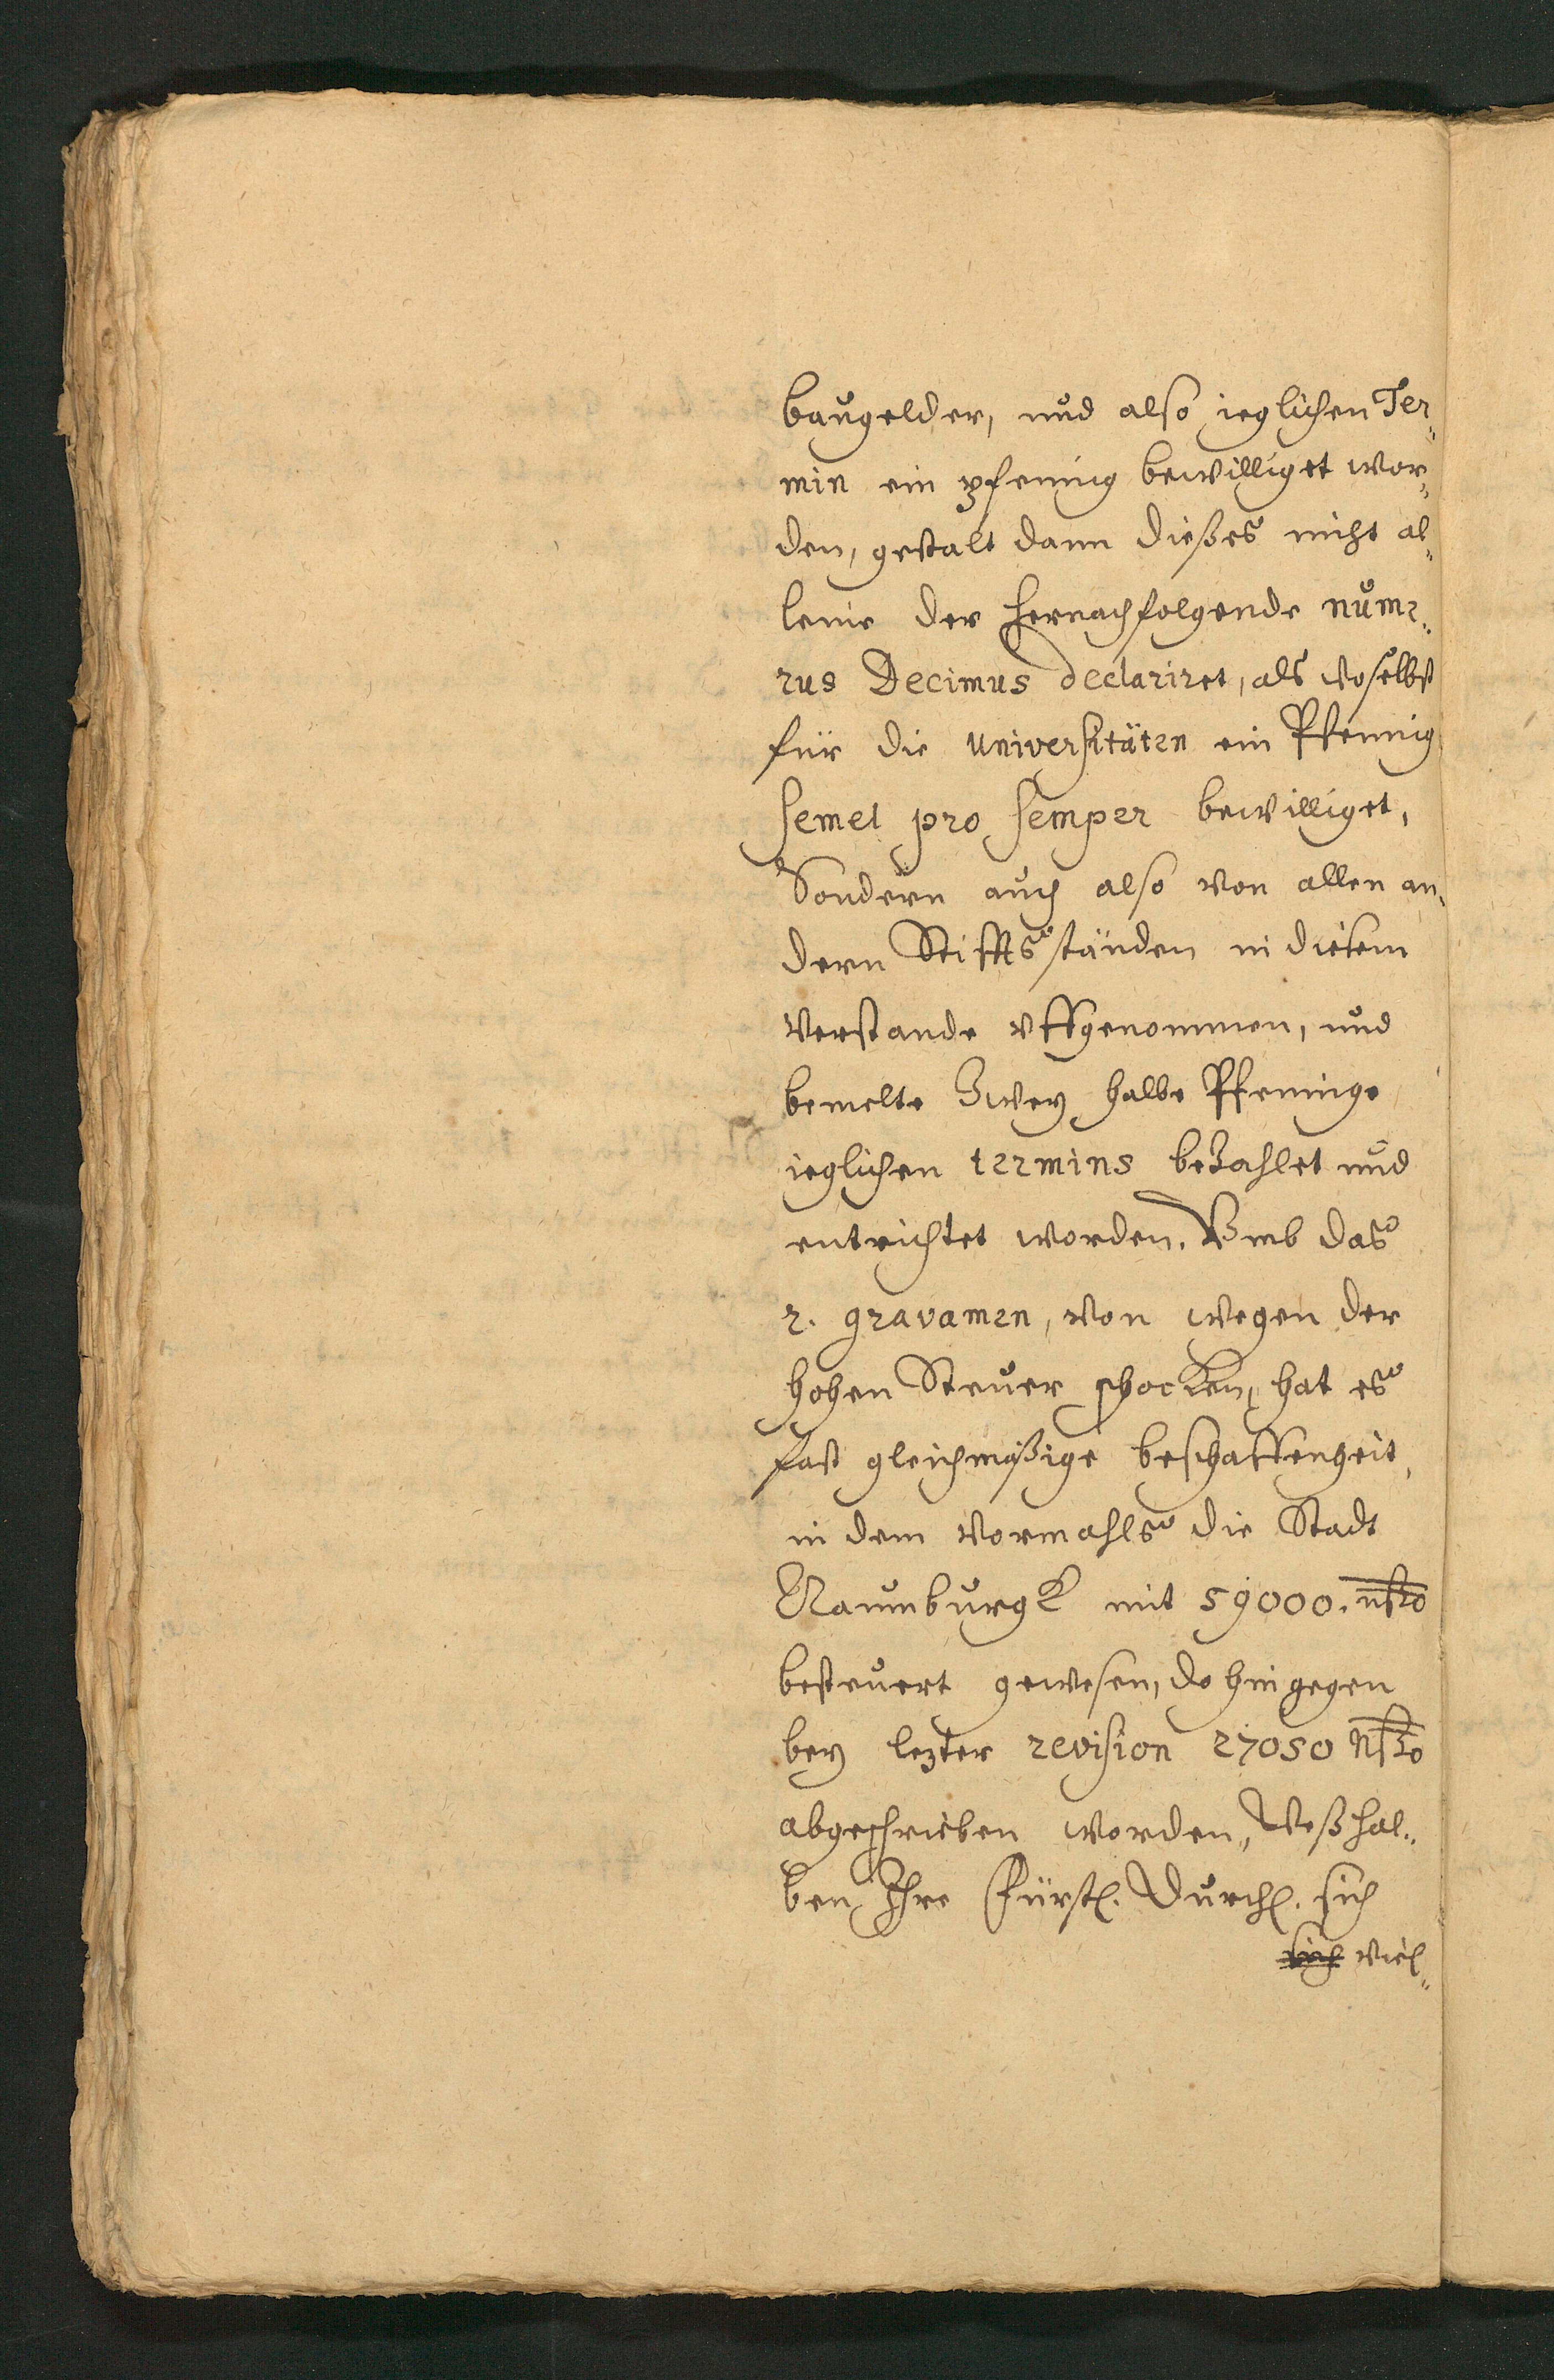 baugelder, und also ieglichen Ter„
min ein pfennig bewilliget wor„
den, gestalt dann dießes nicht al„
leine der hernachfolgende nume„
rus Decimus declariret, als woselbst
für die Universitäten ein Pfennig
semel pro semper bewilliget,
Sondern auch also von allen an„
dern Stiffts ständen in diesem
verstande uffgenommen, und
bemelte Zwey halbe Pfenninge
ieglichen termins bezahlet und
entrichtet worden. Umb das
2. gravamen, von wegen der
hohen Steuer schocken, hat es
fast gleichmäßige beschaffenheit,
in dem vormahls die Stadt
Naumburgk mit 59000. nßo
besteuert gewesen, do hingegen
bey lezter revision 27050 nßo
abgeschrieben worden, Weßhal„
ben Ihre Fürstl. Durchl. sich
sich viel„